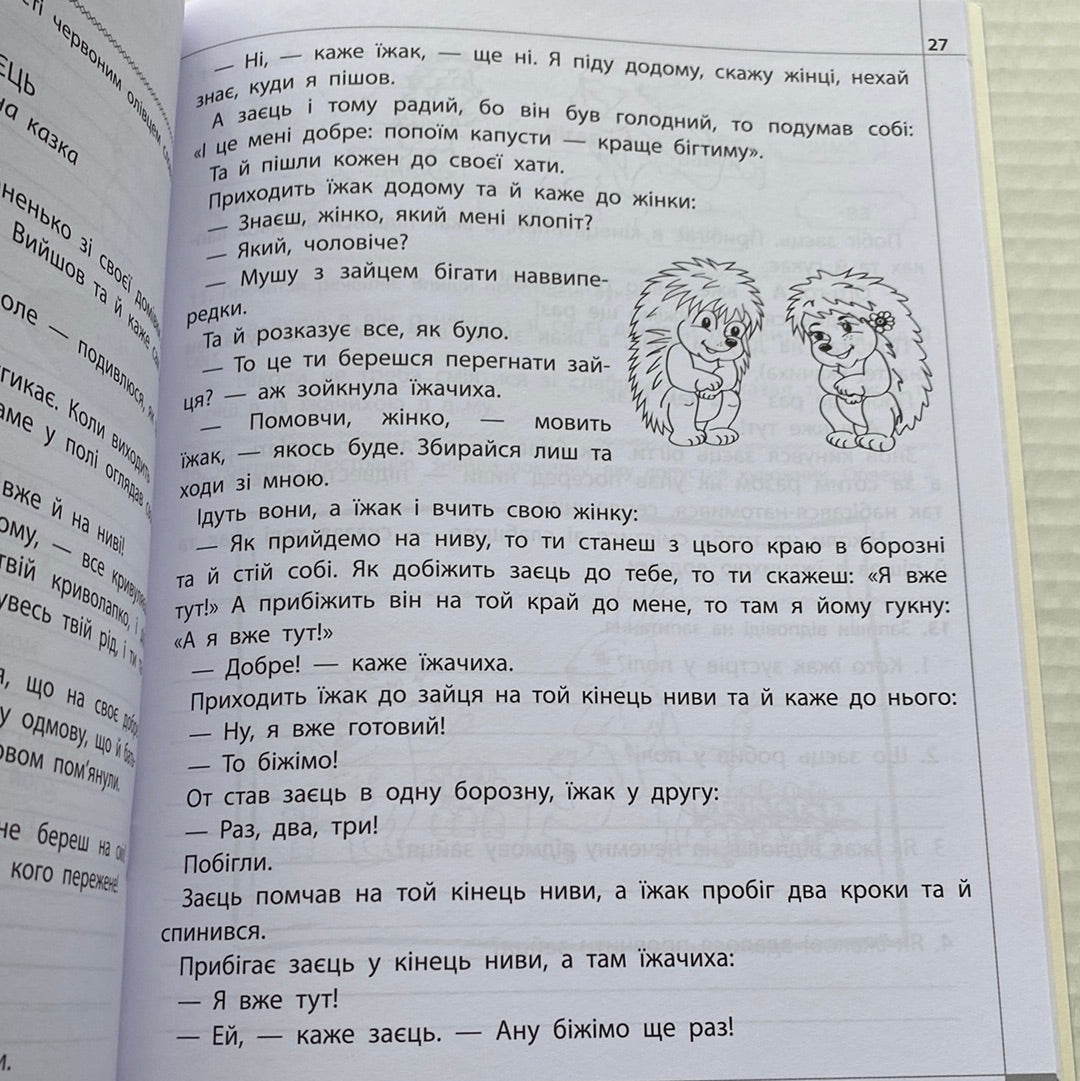 ті червоним олівцем
ЄЦЬ
на казка
ненько зі своєї
Вийшов та й каже
оле — подивлюся, як
гикає. Коли виходить
аме у полі оглядав
вже й на ниві!
ому, — все
твій криволапко, і
увесь твій рід, і ти
я, що на своє
у одмову, що й
овом пом'янули.
не береш на
кого пережене!
и.
27
— Ні, — каже їжак, — ще ні. Я піду додому, скажу жінці, нехай
знає, куди я пішов.
А заєць і тому радий, бо він був голодний, то подумав собі:
«І це мені добре: попоїм капусти — краще бігтиму».
Та й пішли кожен до своєї хати.
Приходить їжак додому та й каже до жінки:
— Знаєш, жінко, який мені клопіт?
— Який, чоловіче?
— Мушу з зайцем бігати наввипе-
редки.
Та й розказує все, як було.
— То це ти берешся перегнати зай-
ця? — аж зойкнула їжачиха.
— Помовчи, жінко, — мовить
їжак, — якось буде. Збирайся лиш та
ходи зі мною.
Ідуть вони, а їжак і вчить свою жінку:
— Як прийдемо на ниву, то ти станеш з цього краю в борозні
та й стій собі. Як добіжить заєць до тебе, то ти скажеш: «Я вже
тут!» А прибіжить він на той край до мене, то там я йому гукну:
«А я вже тут!»
— Добре! — каже їжачиха.
Приходить їжак до зайця на той кінець ниви та й каже до нього:
— Ну, я вже готовий!
— То біжімо!
От став заєць в одну борозну, їжак у другу:
— Раз, два, три!
Побігли.
Заєць помчав на той кінець ниви, а їжак пробіг два кроки та й
спинився.
Прибігає заєць у кінець ниви, а там їжачиха:
— Я вже тут!
— Ей, — каже заєць. — Ану біжімо ще раз!